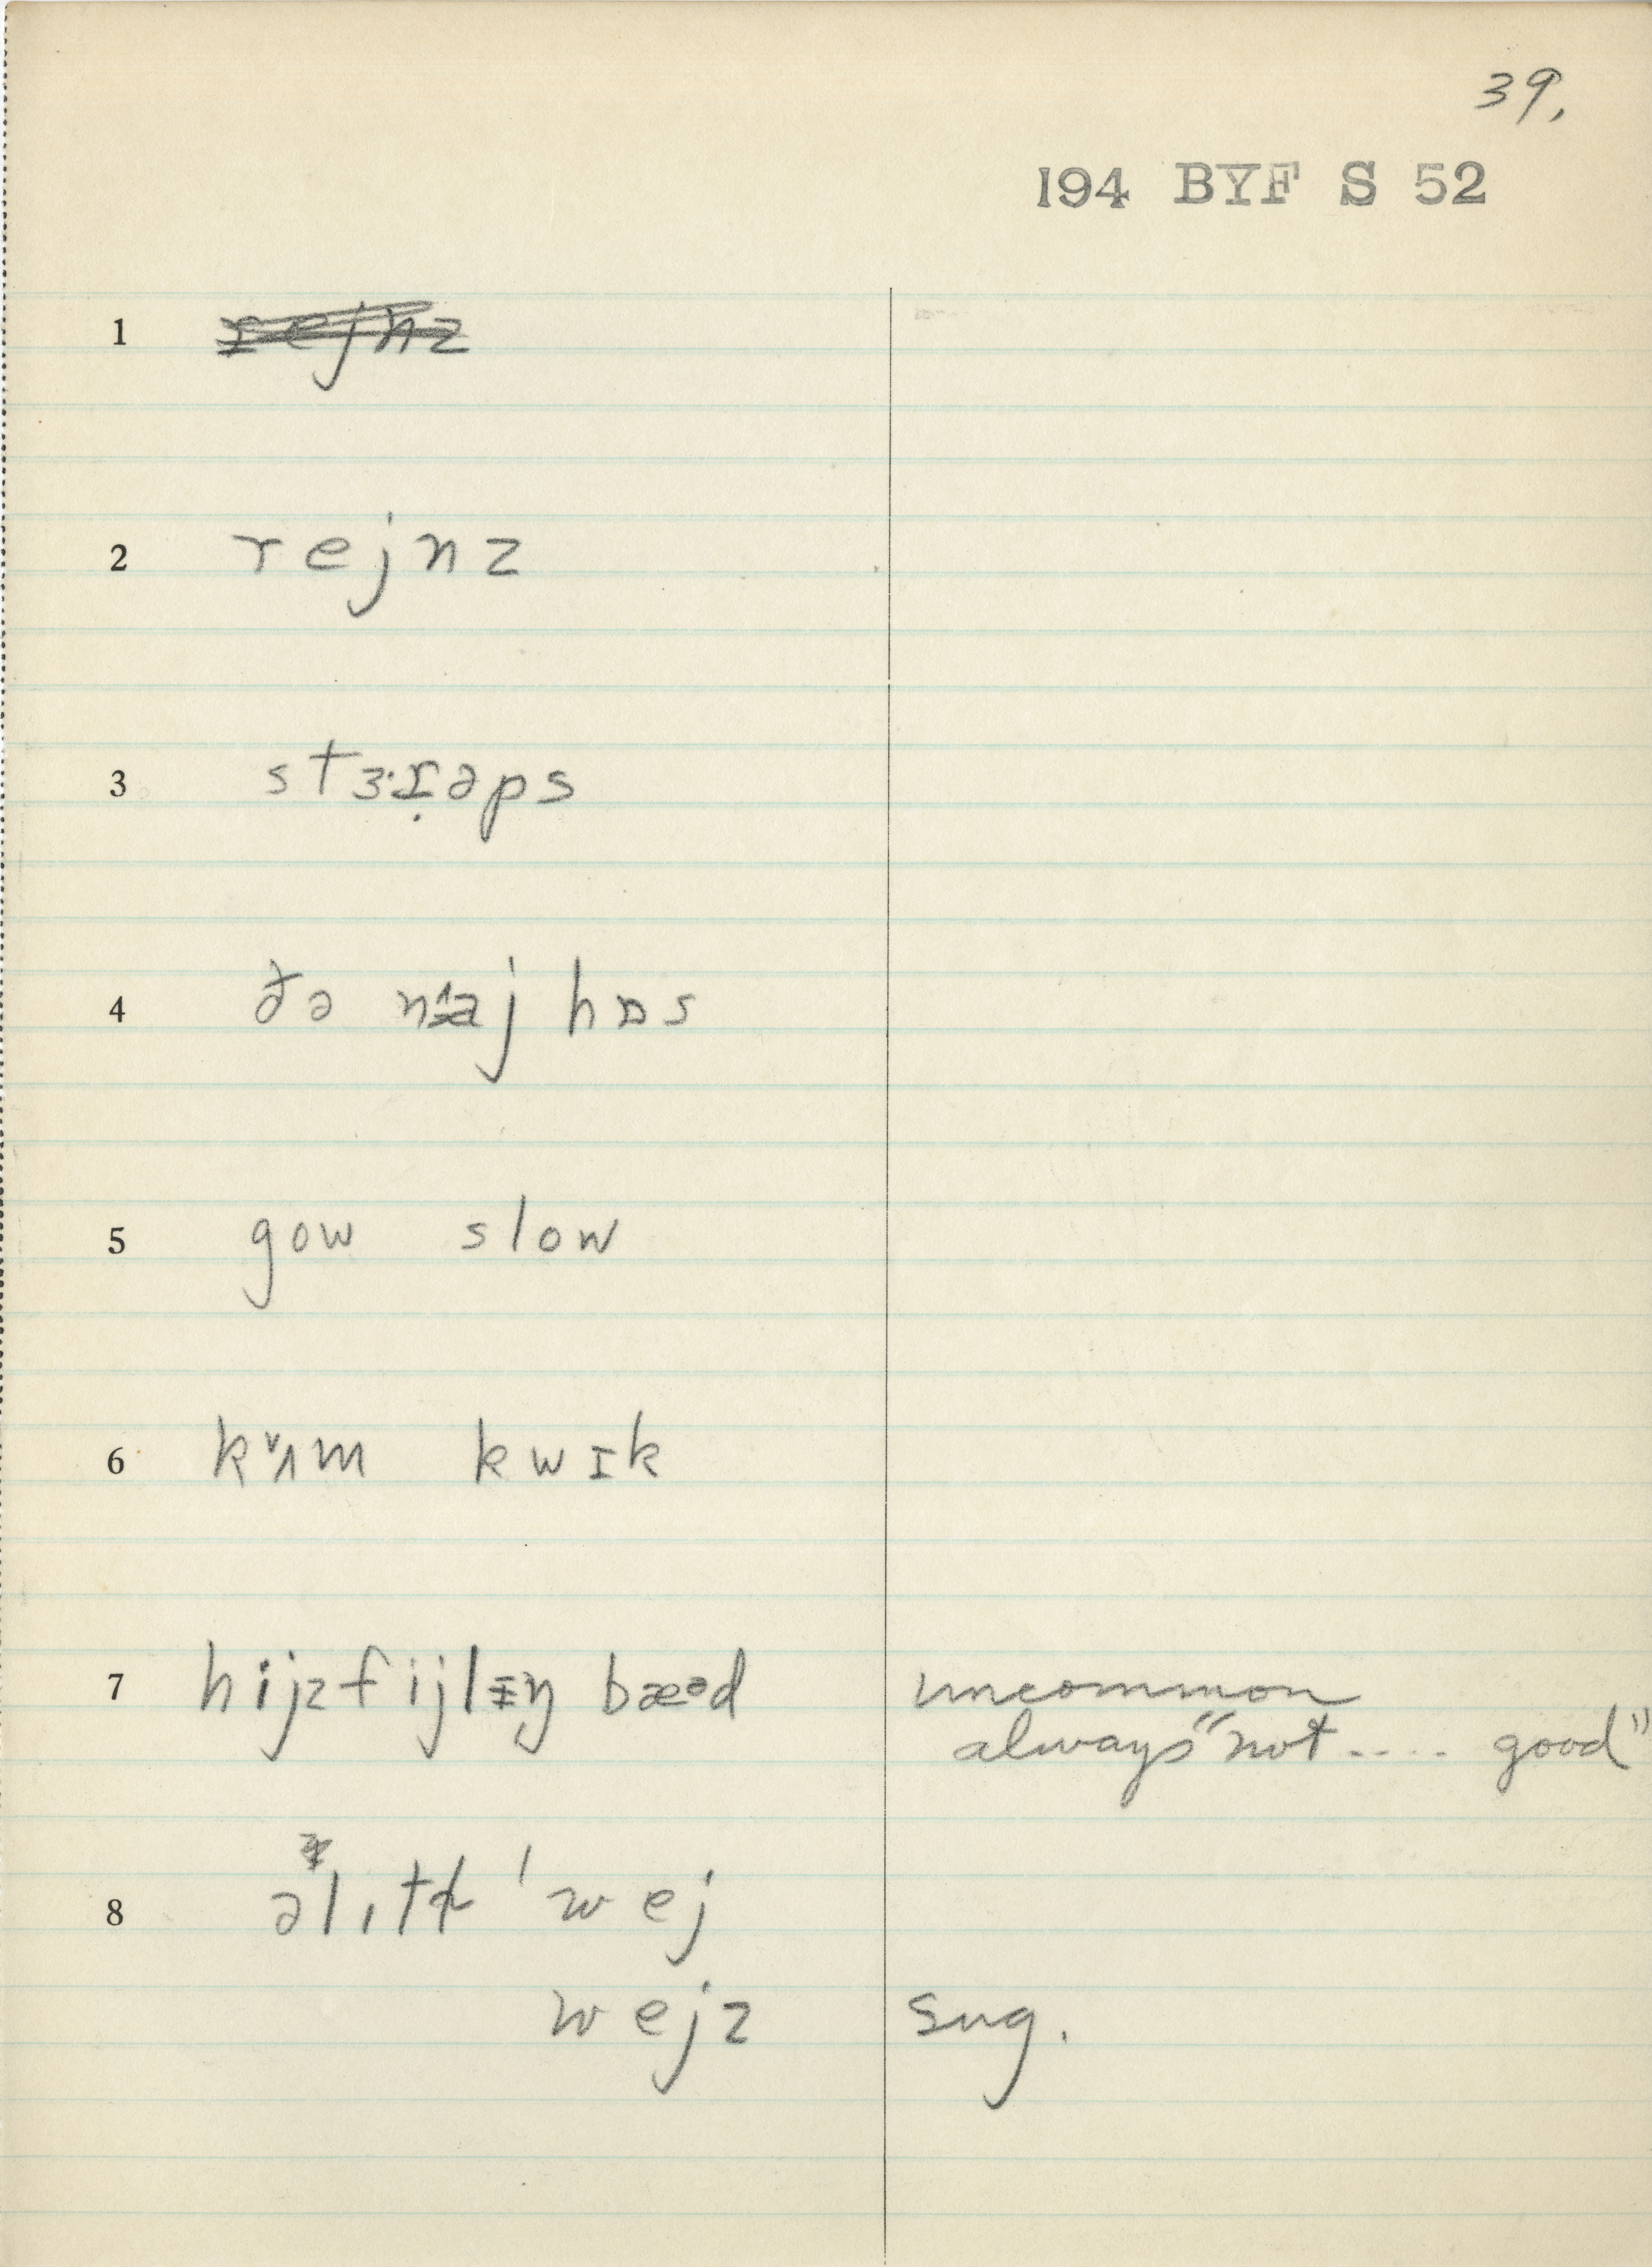 39.
194 BYF S 52
1 rejnz
2 rejnz
3
4 ðə hɒs
5 gow slow
6 kʌ̌m kwɪk
7 hijz fijlɪŋ bæᵊd uncommon
always "not .... good"
8 'wej
wejz sug.